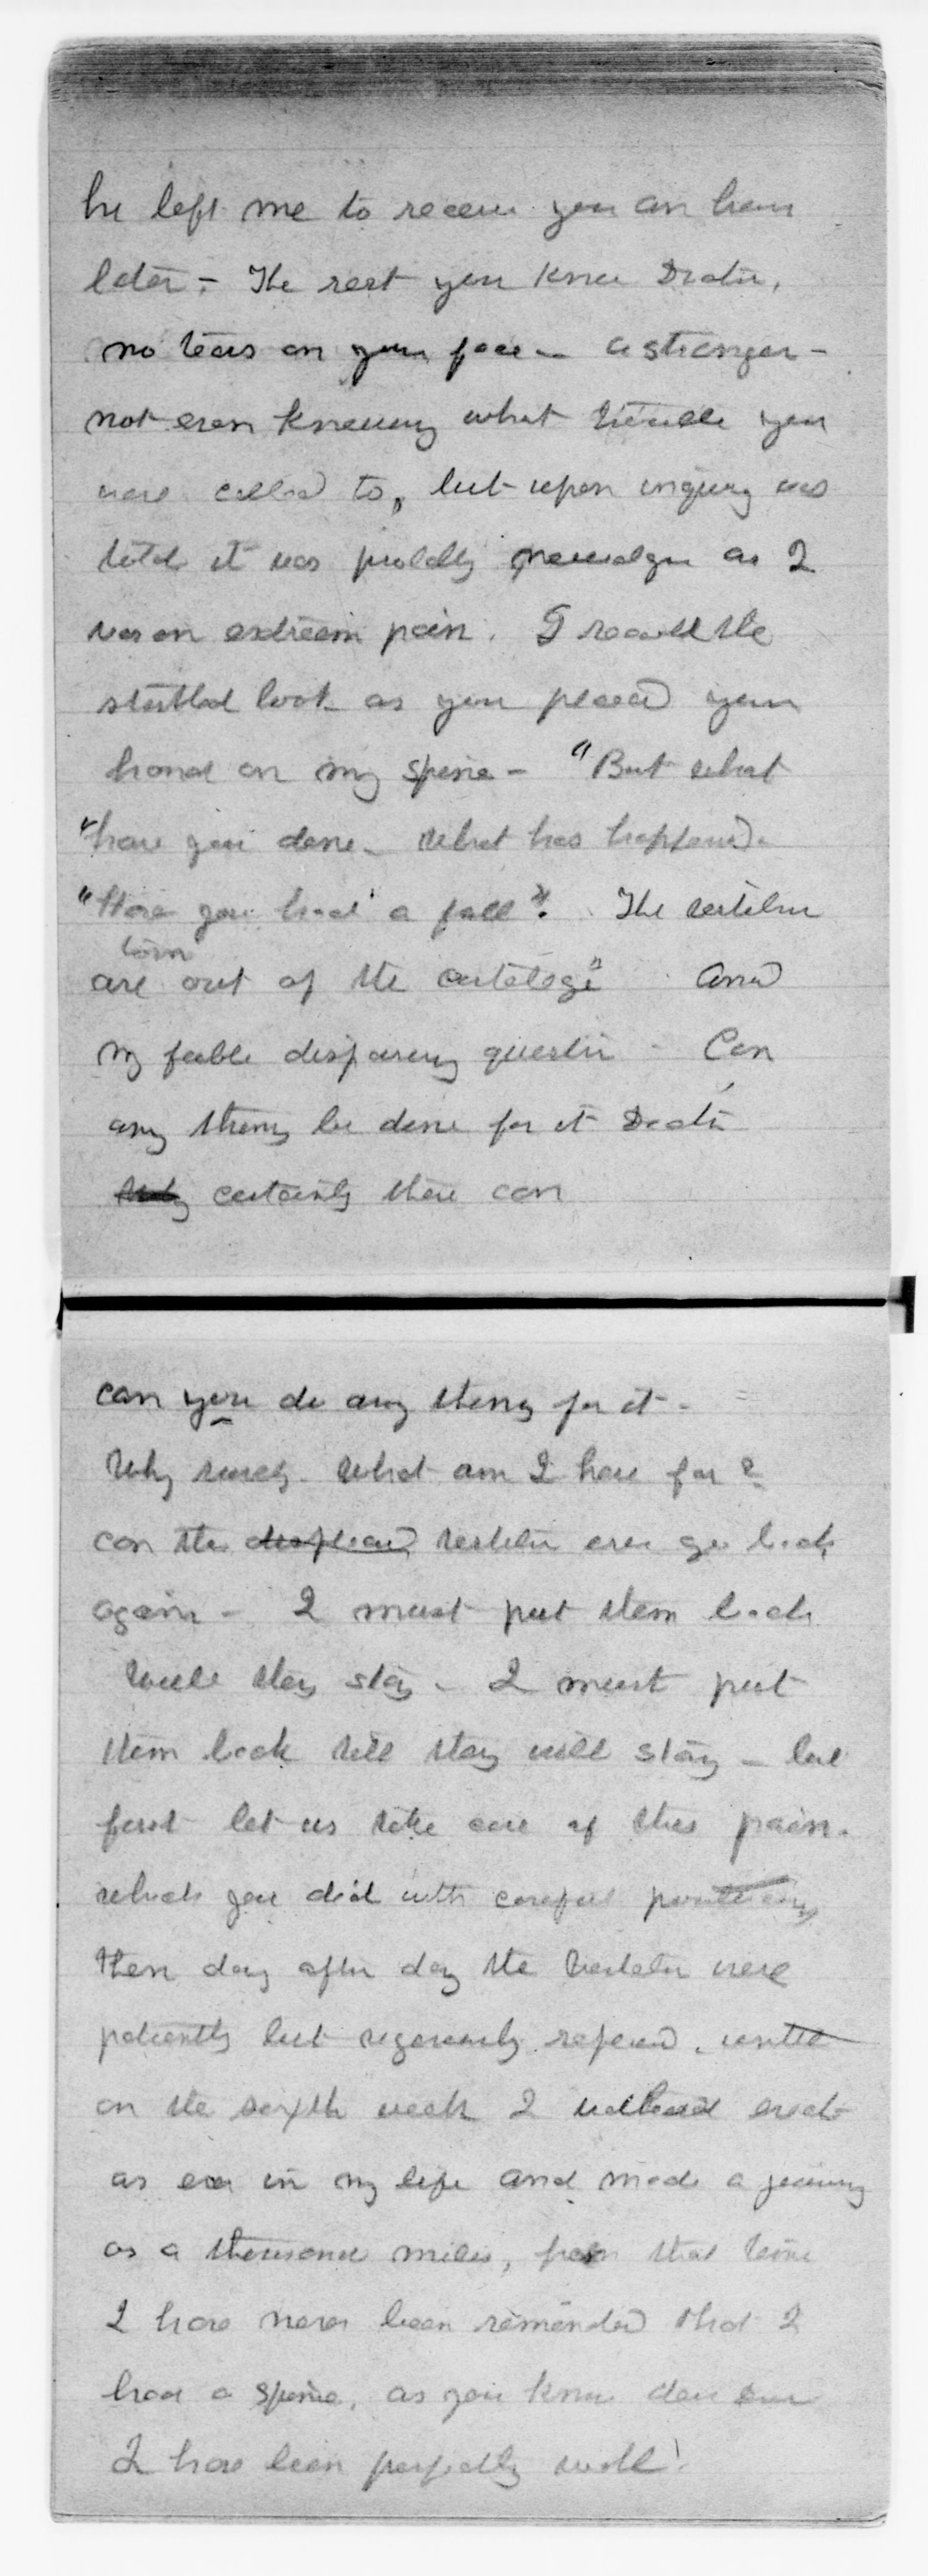 he left me to receive you an hour
later - The rest you know Doctor,
no tears on your face - a stranger -
not even knowing what trouble you
were called to, but upon inquiry was
told it was probably neuralgia as I
was in extreem pain. I recall the
startled look as you placed your
hand on my spine - "But what
"have you done - What has happened -
"Have you had a fall"? The vertebra
torn
are out of the cartelege" And
my feeble disparing question - Can
any thing be done for it Doctor
certainly there can
can you do any thing for it -
Why surely. What am I here for?
can the displaced vertebra ever go back
again - I must put them back
Will they stay - I must put
them back till they will stay - but
first let us take care of this pain.
which you did with careful
then day after day the vertebra were
patiently but vigorously replaced.
on the sixth week I walked erect
as ever in my life and made a journey
os a thousand miles, from that time
I have never been reminded that I
had a spine, as you know dear
I have been perfectly well!